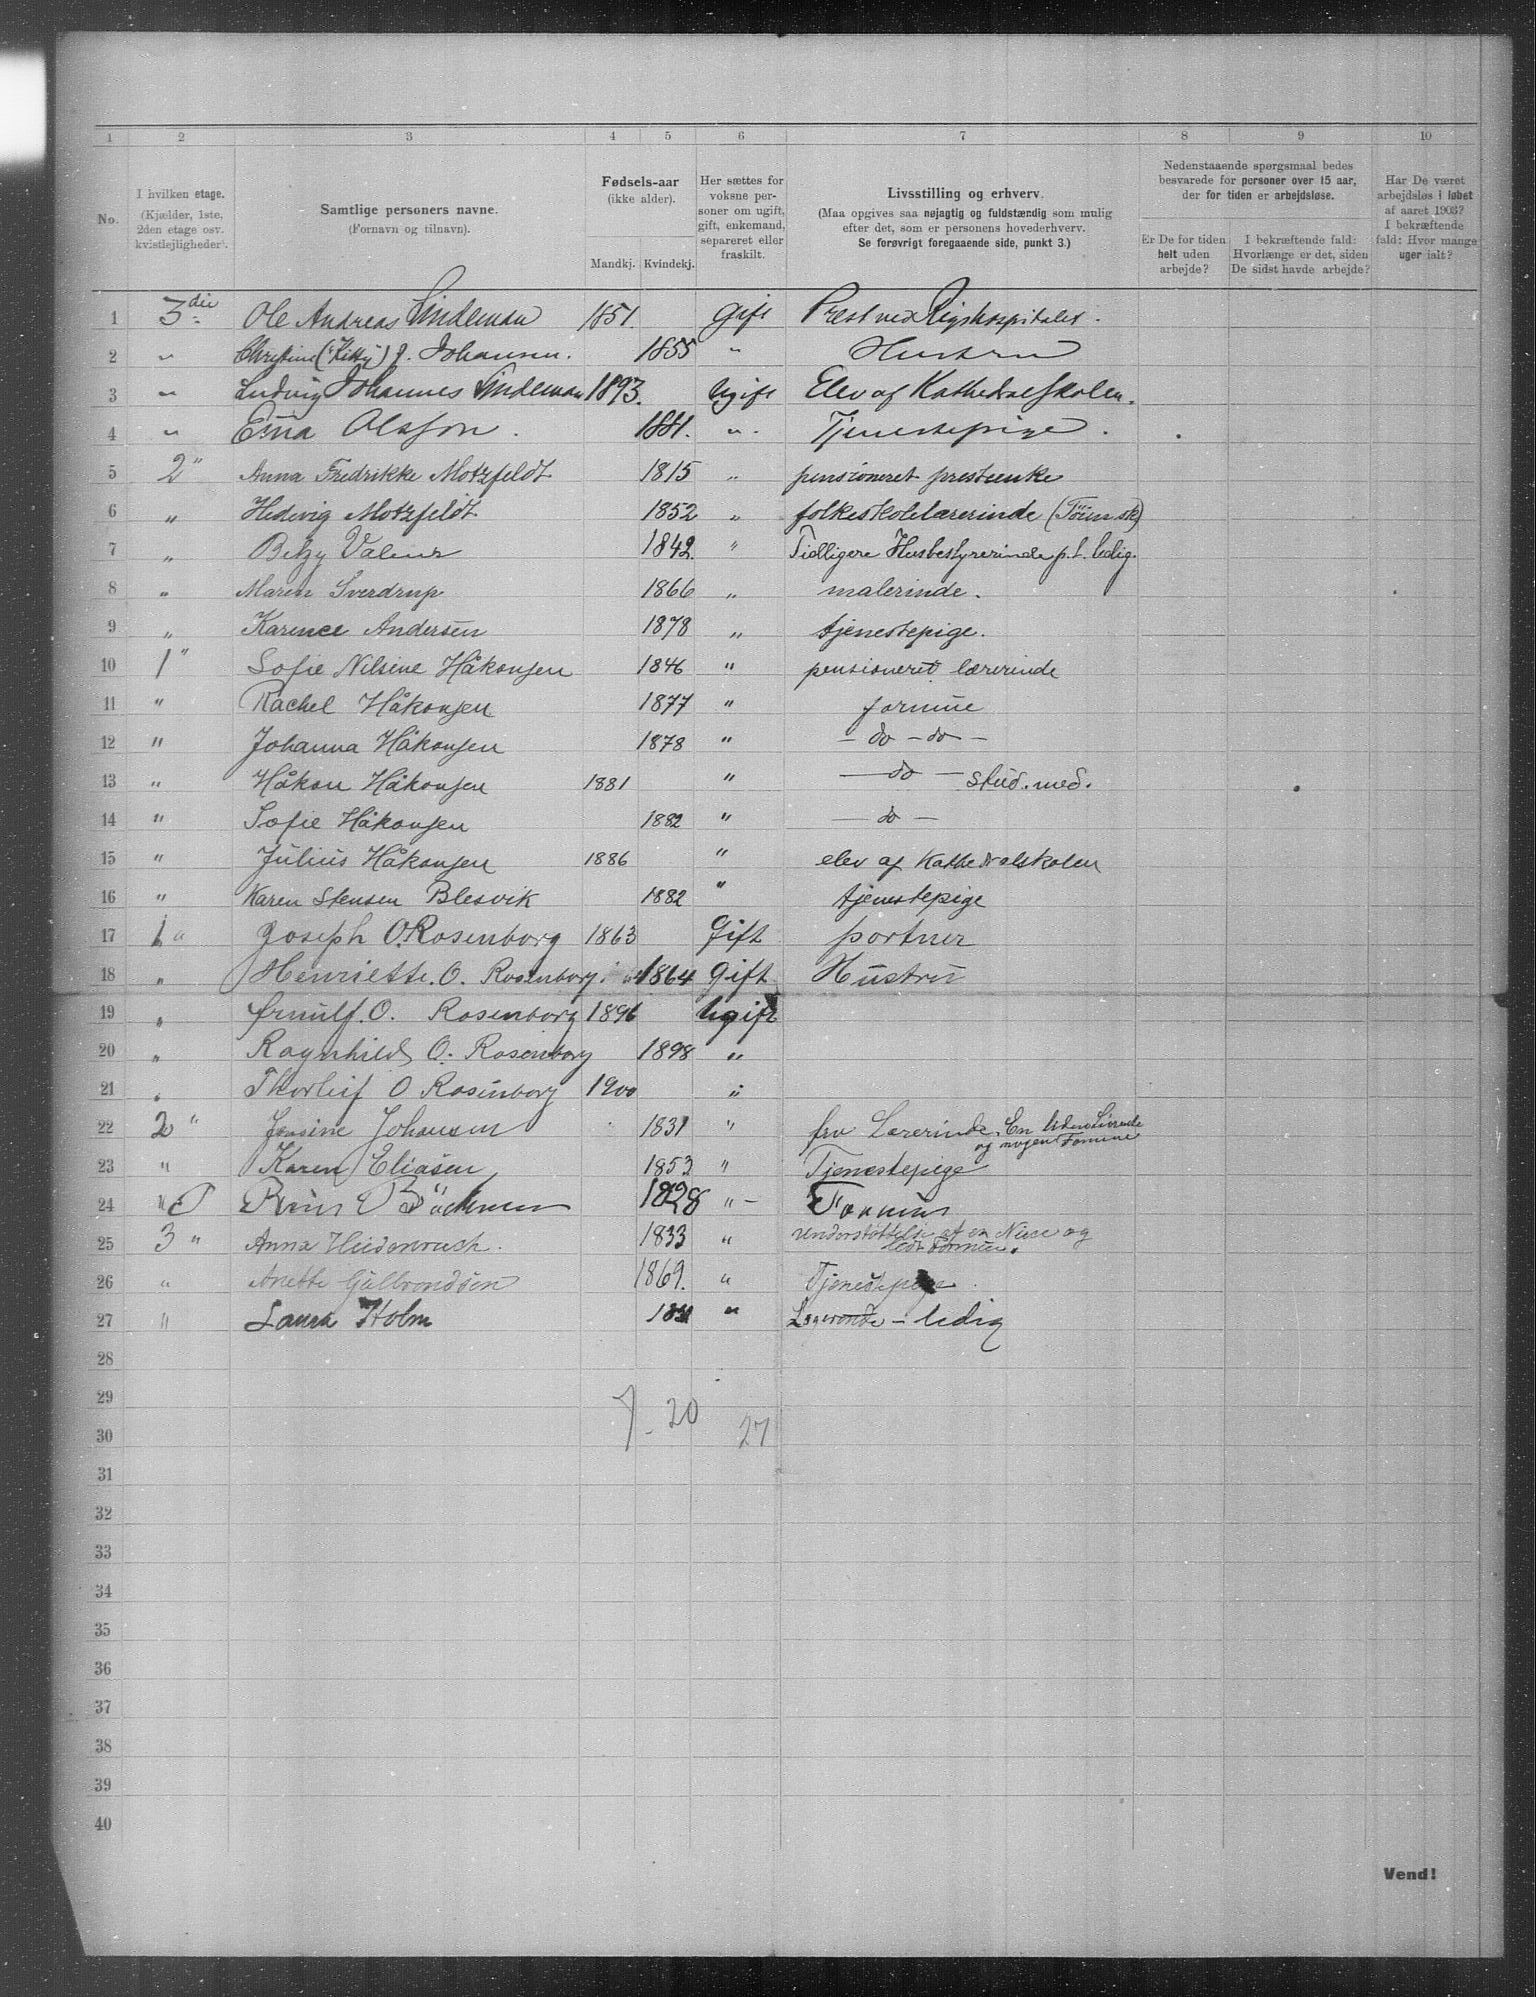 1 2 3 4 5 6 7 8 9 10
No.
I hvilken etage.
(Kjælder, 1ste,
2den etage osv.
kvistlejligheder).
Samtlige personers navne.
(Fornavn og tilnavn).
Fødsels-aar
(ikke alder).
Mandkj. Kvindekj.
Her sættes for
voksne per-
soner om ugift,
gift, enkemand,
separeret eller
fraskilt.
Livsstilling og erhverv.
(Maa opgives saa nøjagtig og fuldstændig som mulig
efter det, som er personens hovederhverv.
Se forøvrigt foregaaende side, punkt 3.)
Nedenstaaende spørgsmaal bedes
besvarede for personer over 15 aar,
der for tiden er arbejdsløse.
Er De for tiden
helt uden
arbejde?
I bekræftende fald:
Hvorlænge er det, siden
De sidst havde arbejde?
Har De været
arbejdsløs i løbet
af aaret 1903?
I bekræftende
fald: Hvor mange
uger ialt?
1 3die Ole Andreas Lindeman 1851. gift Prest ved Rigshospitalet.
2 " Christine ("Kitty") J. Johansen. 1855 " Hustru
3 " Ludvig Johannes Lindeman 1893. Ugift Elev af Kathedralskolen.
4 " Olsson. 1881. " Tjenestepige.
5 2" Anna Fredrikke Motzfeldt 1815 " pensioneret presteenke
6 " Hedevig Motzfeldt 1852 " folkeskolelærerinde (Tøien sk)
7 " Betzy Valeur 1842. " Tidligere Husbestyrerinde p.t. ledig.
8 " Maren Sverdrup 1866 " malerinde.
9 " Karence Andersen 1878 " tjenestepige.
10 1" Sofie Nilsine Håkonsen 1846 " pensioneret lærerinde
11 " Rachel Håkonsen 1877 " formue
12 " Johanna Håkonsen 1878 " - do - do -
13 " Håkon Håkonsen 1881 " - do - stud. med.
14 " Sofie Håkonsen 1882 " - do -
15 " Julius Håkonsen 1886 " elev af Kathedralskolen
16 " Karen Stensen Blesvik 1882 " tjenestepige
17 1 " Joseph O. Rosenborg 1863 Gift portner
18 " Henriette. O. Rosenborg 1864 Gift Hustru
19 " Arnulf. O. Rosenborg 1896 Ugift
20 " Ragnhild O. Rosenborg 1898 "
21 " Thorleif O Rosenborg 1900 "
22 2 " Jensine Johansen 1831 " frv Lærerinde. En liden Livrende
og nogen Formue
23 " Karen Eliasen 1853 " Tjenestepige
24 " 1828 " - Formue
25 3 " Anna Heidenreich. 1833 " Understøttelse af en Niece og
lidt Formue.
26 " Anette Gulbrandsen 1869. " Tjenestepige.
27 " Laura Holm " - ledig
28
29
7 - 20 27
30
31
32
33
34
35
36
37
38
39
40
Vend!